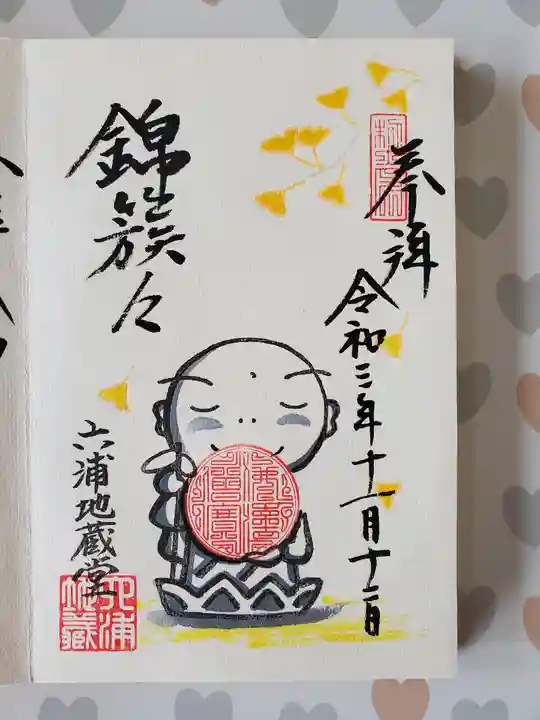 奉拝
令和三年十一月十二日
錦簇々
六浦地蔵堂
六浦
地蔵